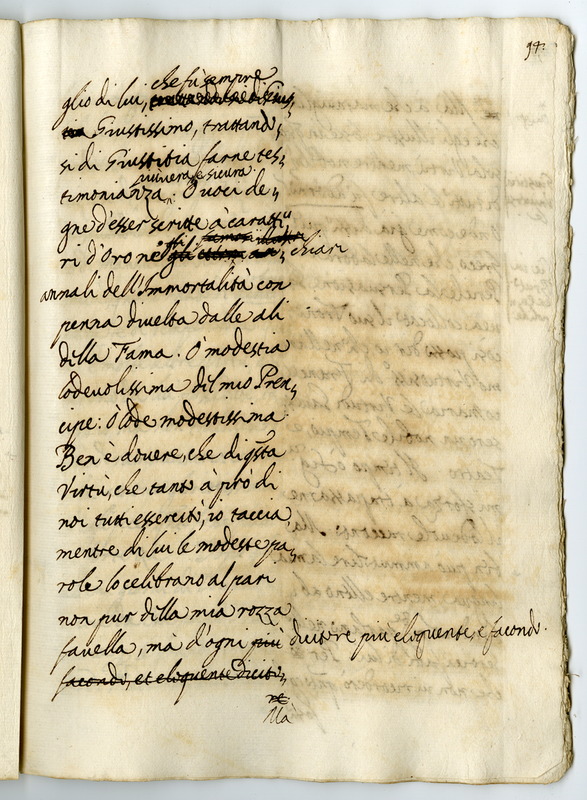 94.
che fù sempre
glio di lui,
Giustissimo, trattand‑
si di Giustitia farne tes‑
universale sicura.
timonianza. Ò voci de‑
gne d'esser scritte à caratti‑
ri d'Oro negli chiari
annali dell'Immortalità con
penna divelta dalle ali
della Fama. Ò modestia
lodevolissima del mio Pren‑
cipe: ò lode modestissima
Ben è dovere, che di qsta
Virtù, che tanto à prò di
noi tutti essercitò, io taccia,
mentre di lui le modeste pa‑
role lo celibrano al pari
non pur della mia rozza
favella, mà d'ogni più dicitore più eloquente, e facondo.
facondo, et eloquente dicito‑
re.
Mà